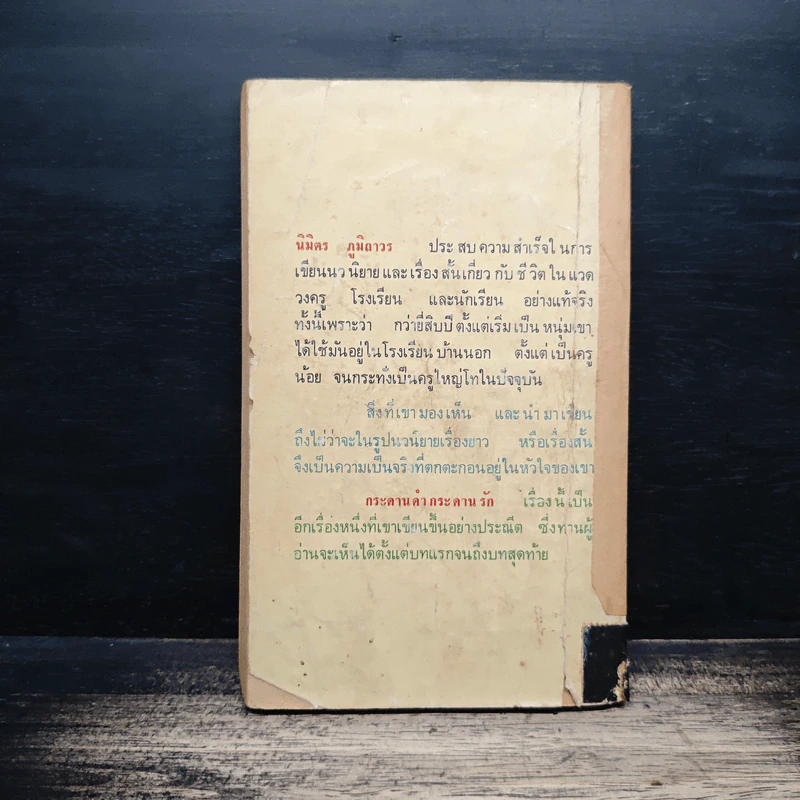 นิมิตร ภูมิถาวร ประสบความสำเร็จในการ
เขียนนวนิยายและเรื่องสั้นเกี่ยวกับชีวิตในแวด
วงครู โรงเรียน และนักเรียน อย่างแท้จริง
ทั้งนี้เพราะว่า กว่ายี่สิบปีตั้งแต่เริ่มเป็นหนุ่มเขา
ได้ใช้มันอยู่ในโรงเรียนบ้านนอก ตั้งแต่เป็นครู
น้อย จนกระทั่งเป็นครูใหญ่โทในปัจจุบัน
สิ่งที่เขามองเห็น และนำมาเขียน
ถึงไม่ว่าจะในรูปนวนิยายเรื่องยาว หรือเรื่องสั้น
จึงเป็นความเป็นจริงที่ตกตะกอนอยู่ในหัวใจของเขา
กระดานดำกระดานรัก เรื่องนี้เป็น
อีกเรื่องหนึ่งที่เขาเขียนขึ้นอย่างประณีต ซึ่งท่านผู้
อ่านจะเห็นได้ตั้งแต่บทแรกจนถึงบทสุดท้าย